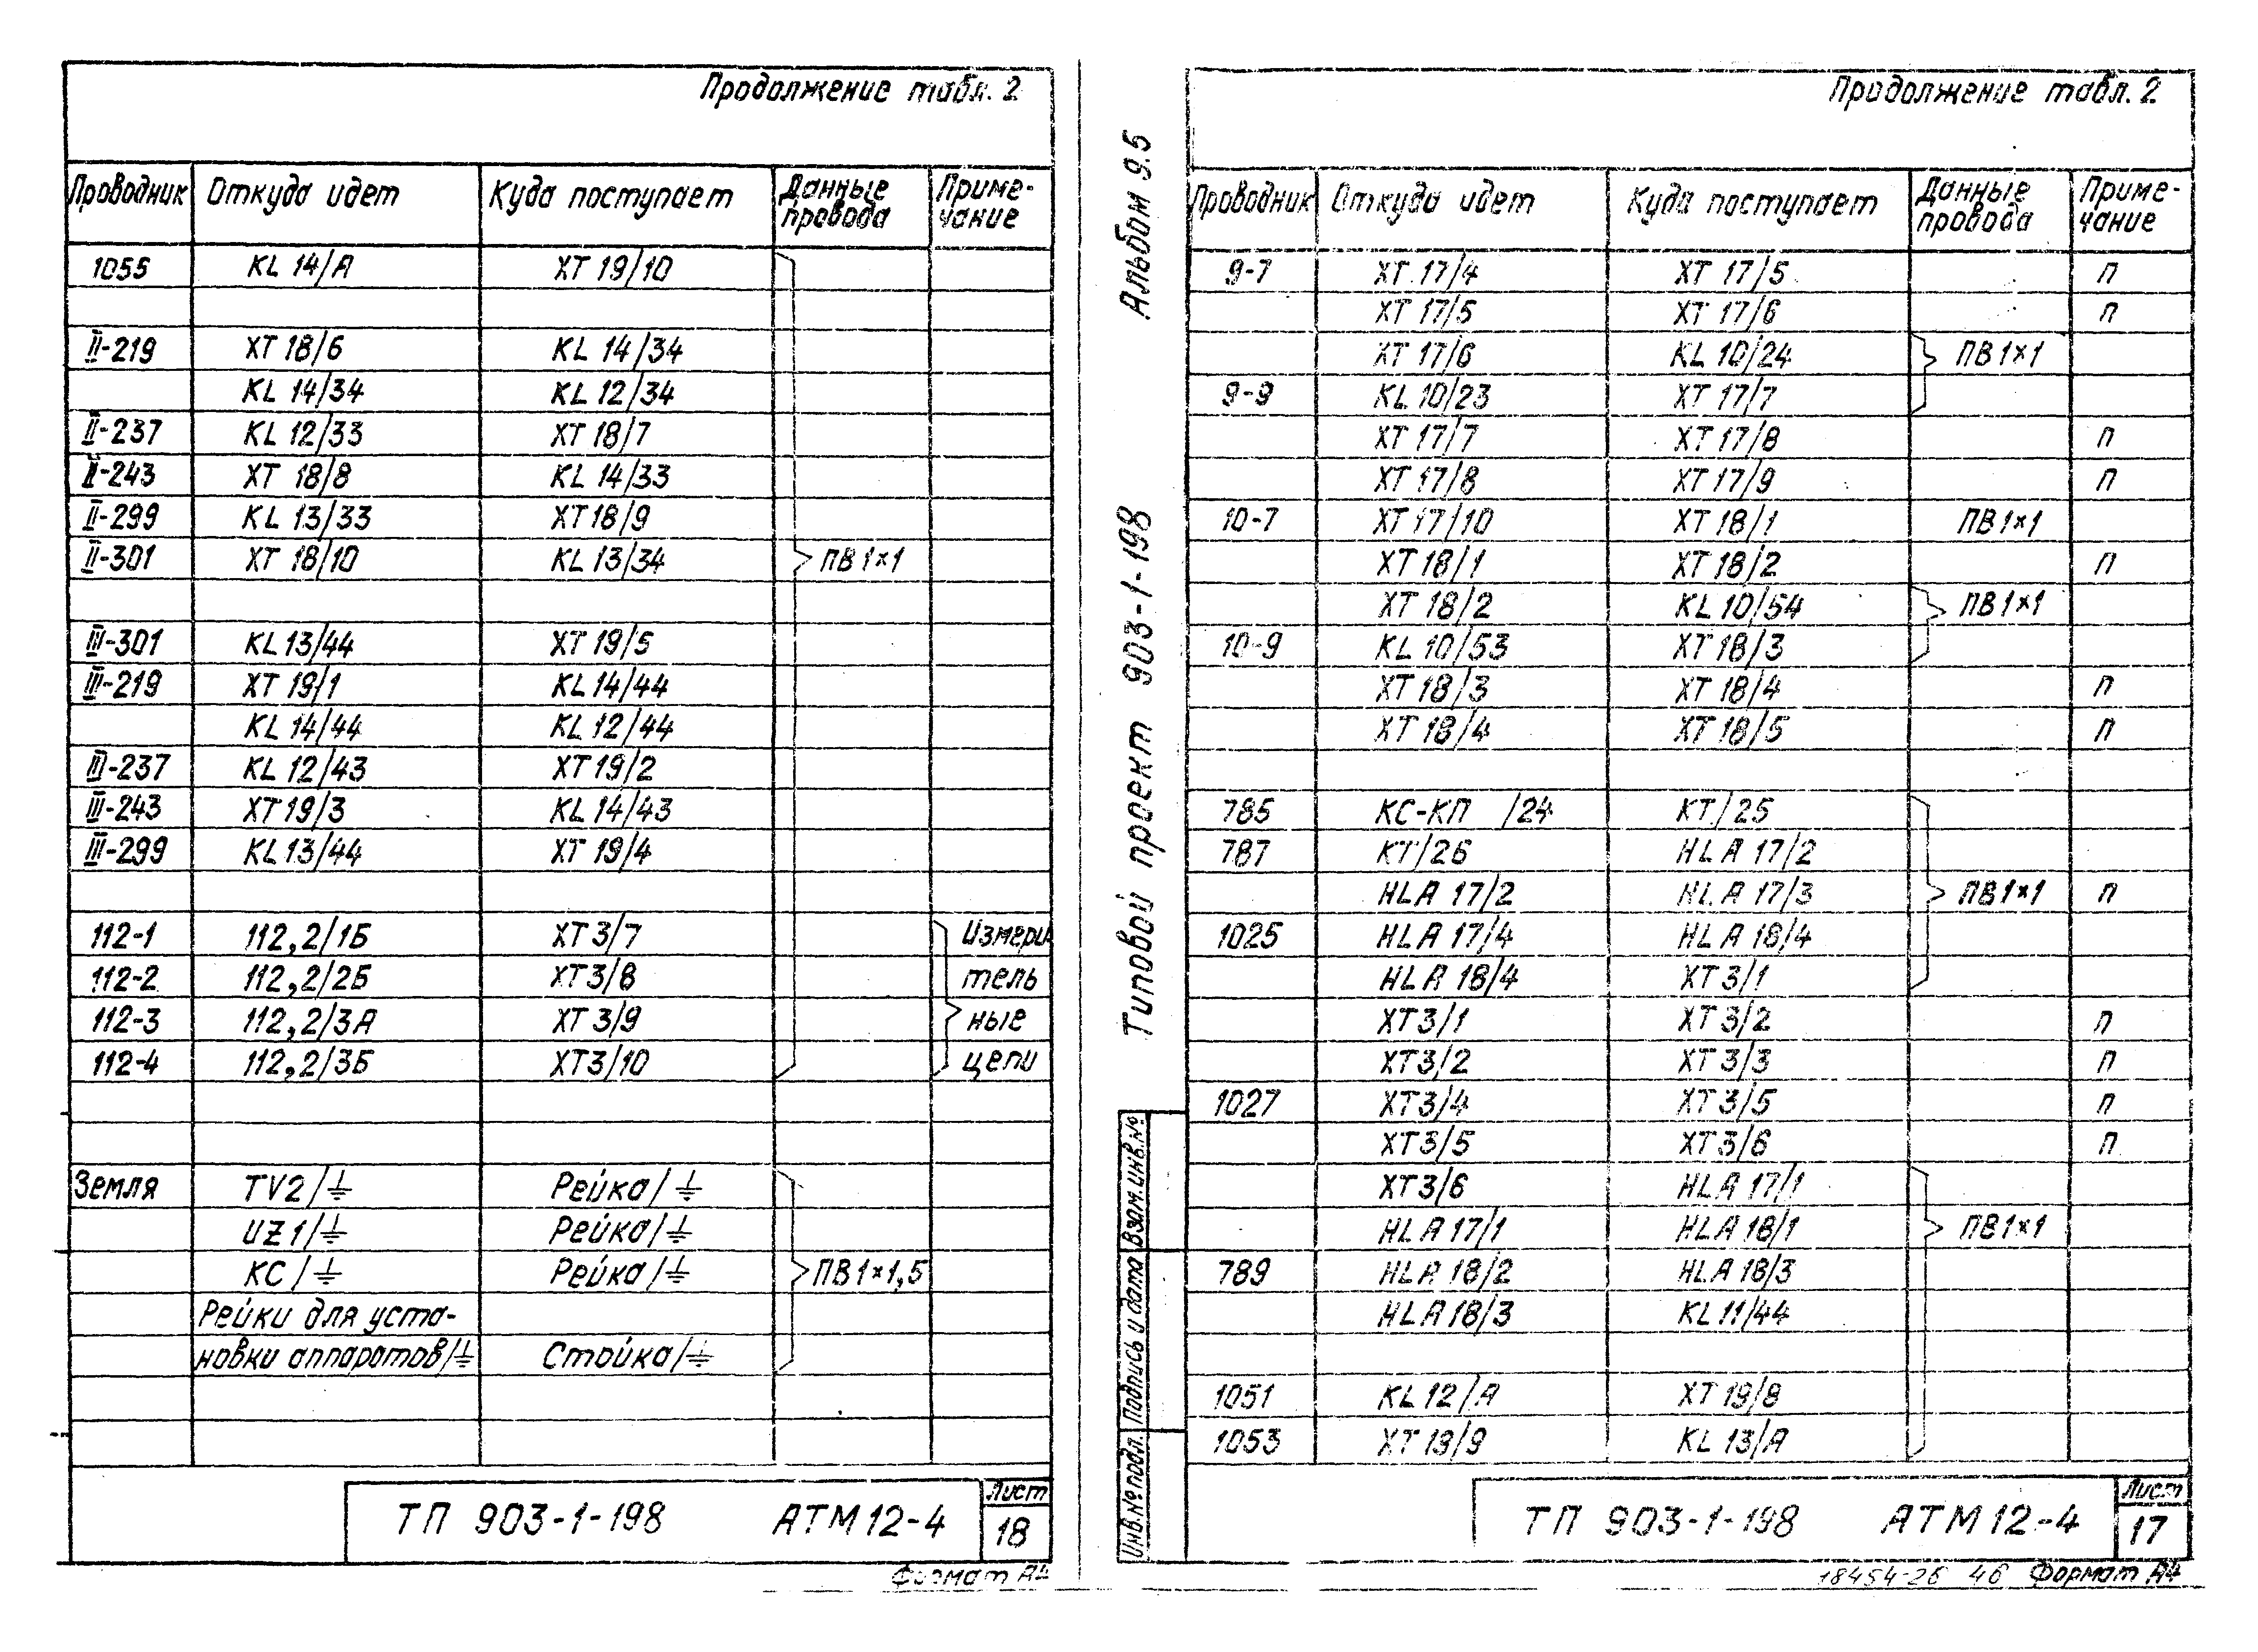 Продолжение табл. 2
Проводник Откуда идет Куда поступает Данные провода Приме-чание
1055 KL 14/A XT 19/10
II-219 XT 18/6 KL 14/34
KL 14/34 KL 12/34
II-237 KL 12/33 XT 18/7
II-243 XT 18/8 KL 14/33
II-299 KL 13/33 XT 18/9
II-301 XT 18/10 KL 13/34 ПВ 1×1
III-301 KL 13/44 XT 19/5
III-219 XT 19/1 KL 14/44
KL 14/44 KL 12/44
III-237 KL 12/43 XT 19/2
III-243 XT 19/3 KL 14/43
III-299 KL 13/44 XT 19/4
112-1 112,2/1Б XT 3/7 Измери
112-2 112,2/2Б XT 3/8 тель
112-3 112,2/3А XT 3/9 ные
112-4 112,2/3Б XT 3/10 цепи
Земля TV2/⏚ Рейка/⏚
UZ1/⏚ Рейка/⏚
КС/⏚ Рейка/⏚ ПВ 1×1,5
Рейки для уста-
новки аппаратов/⏚ Стойка/⏚
ТП 903-1-198 АТМ 12-4 Лист 18
Формат А4
Альбом 9.5
Типовой проект 903-1-198
Инв.№ подл. Подпись и дата Взам.инв.№
Продолжение табл. 2
Проводник Откуда идет Куда поступает Данные провода Приме-чание
9-7 XT 17/4 XT 17/5 П
XT 17/5 XT 17/6 П
XT 17/6 KL 10/24 ПВ 1×1
9-9 KL 10/23 XT 17/7
XT 17/7 XT 17/8 П
XT 17/8 XT 17/9 П
10-7 XT 17/10 XT 18/1 ПВ 1×1
XT 18/1 XT 18/2 П
XT 18/2 KL 10/54 ПВ 1×1
10-9 KL 10/53 XT 18/3
XT 18/3 XT 18/4 П
XT 18/4 XT 18/5 П
785 КС-КП /24 КТ/25
787 КТ/26 HLA 17/2
HLA 17/2 HLA 17/3 ПВ 1×1 П
1025 HLA 17/4 HLA 18/4
HLA 18/4 XT 3/1
XT 3/1 XT 3/2 П
XT 3/2 XT 3/3 П
1027 XT 3/4 XT 3/5 П
XT 3/5 XT 3/6 П
XT 3/6 HLA 17/1
HLA 17/1 HLA 18/1 ПВ 1×1
789 HLA 18/2 HLA 18/3
HLA 18/3 KL 11/44
1051 KL 12/A XT 19/8
1053 XT 19/9 KL 13/A
ТП 903-1-198 АТМ 12-4 Лист 17
18454-26 46 Формат А4